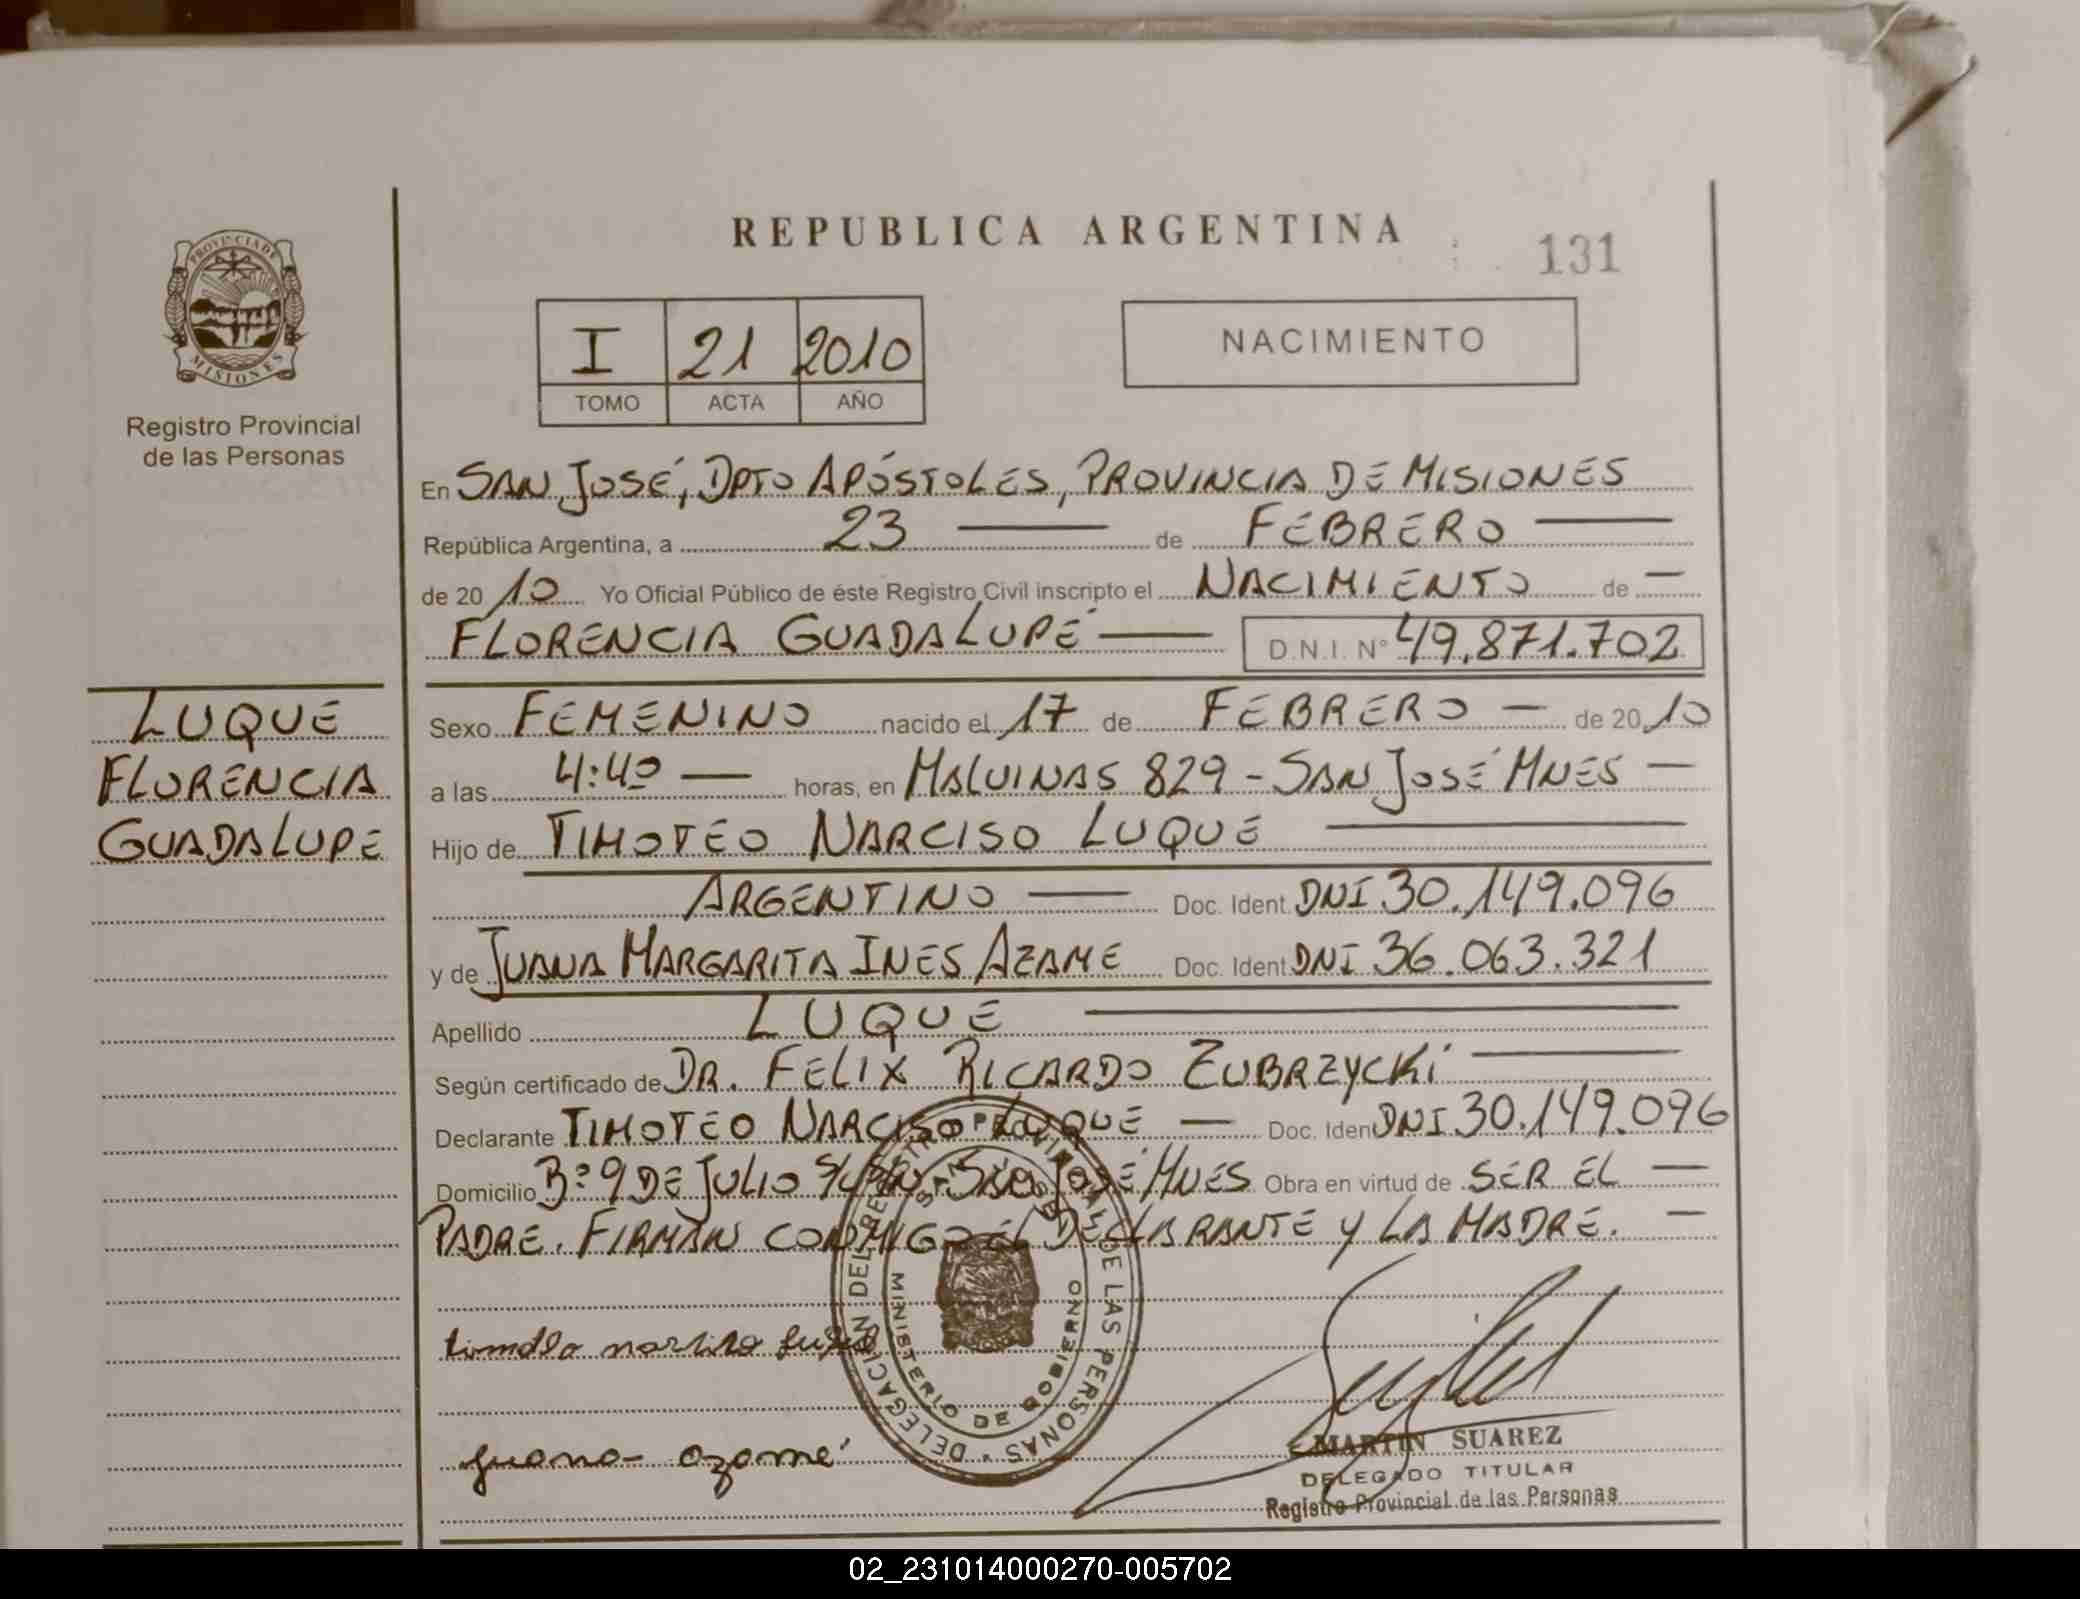 REPUBLICA ARGENTINA
131
PROVINCIA DE
MISIONES
Registro Provincial
de las Personas
I 21 2010
TOMO ACTA AÑO
NACIMIENTO
En SAN JOSÉ, DPTO APÓSTOLES, PROVINCIA DE MISIONES
República Argentina, a 23 — de FEBRERO —
de 20 10 Yo Oficial Público de éste Registro Civil inscripto el NACIMIENTO de —
FLORENCIA GUADALUPE — D.N.I. N° 49.871.702
LUQUE
FLORENCIA
GUADALUPE
Sexo FEMENINO nacido el 17 de FEBRERO — de 20 10
a las 4:40 — horas, en MALVINAS 829 - SAN JOSÉ MNES —
Hijo de TIMOTEO NARCISO LUQUE —
ARGENTINO — Doc. Ident. DNI 30.149.096
y de JUANA MARGARITA INES AZAME Doc. Ident DNI 36.063.321
Apellido LUQUE —
Según certificado de DR. FELIX RICARDO ZUBRZYCKI —
Declarante TIMOTEO NARCISO LUQUE — Doc. Iden DNI 30.149.096
Domicilio B° 9 DE JULIO SAN JOSÉ MNES Obra en virtud de SER EL —
PADRE. FIRMAN CONMIGO EL DECLARANTE Y LA MADRE. —
DELEGACION DEL REGISTRO PROVINCIAL DE LAS PERSONAS
SAN JOSE
MINISTERIO DE GOBIERNO
juana azamé
MARTIN SUAREZ
DELEGADO TITULAR
Registro Provincial de las Personas
02_231014000270-005702